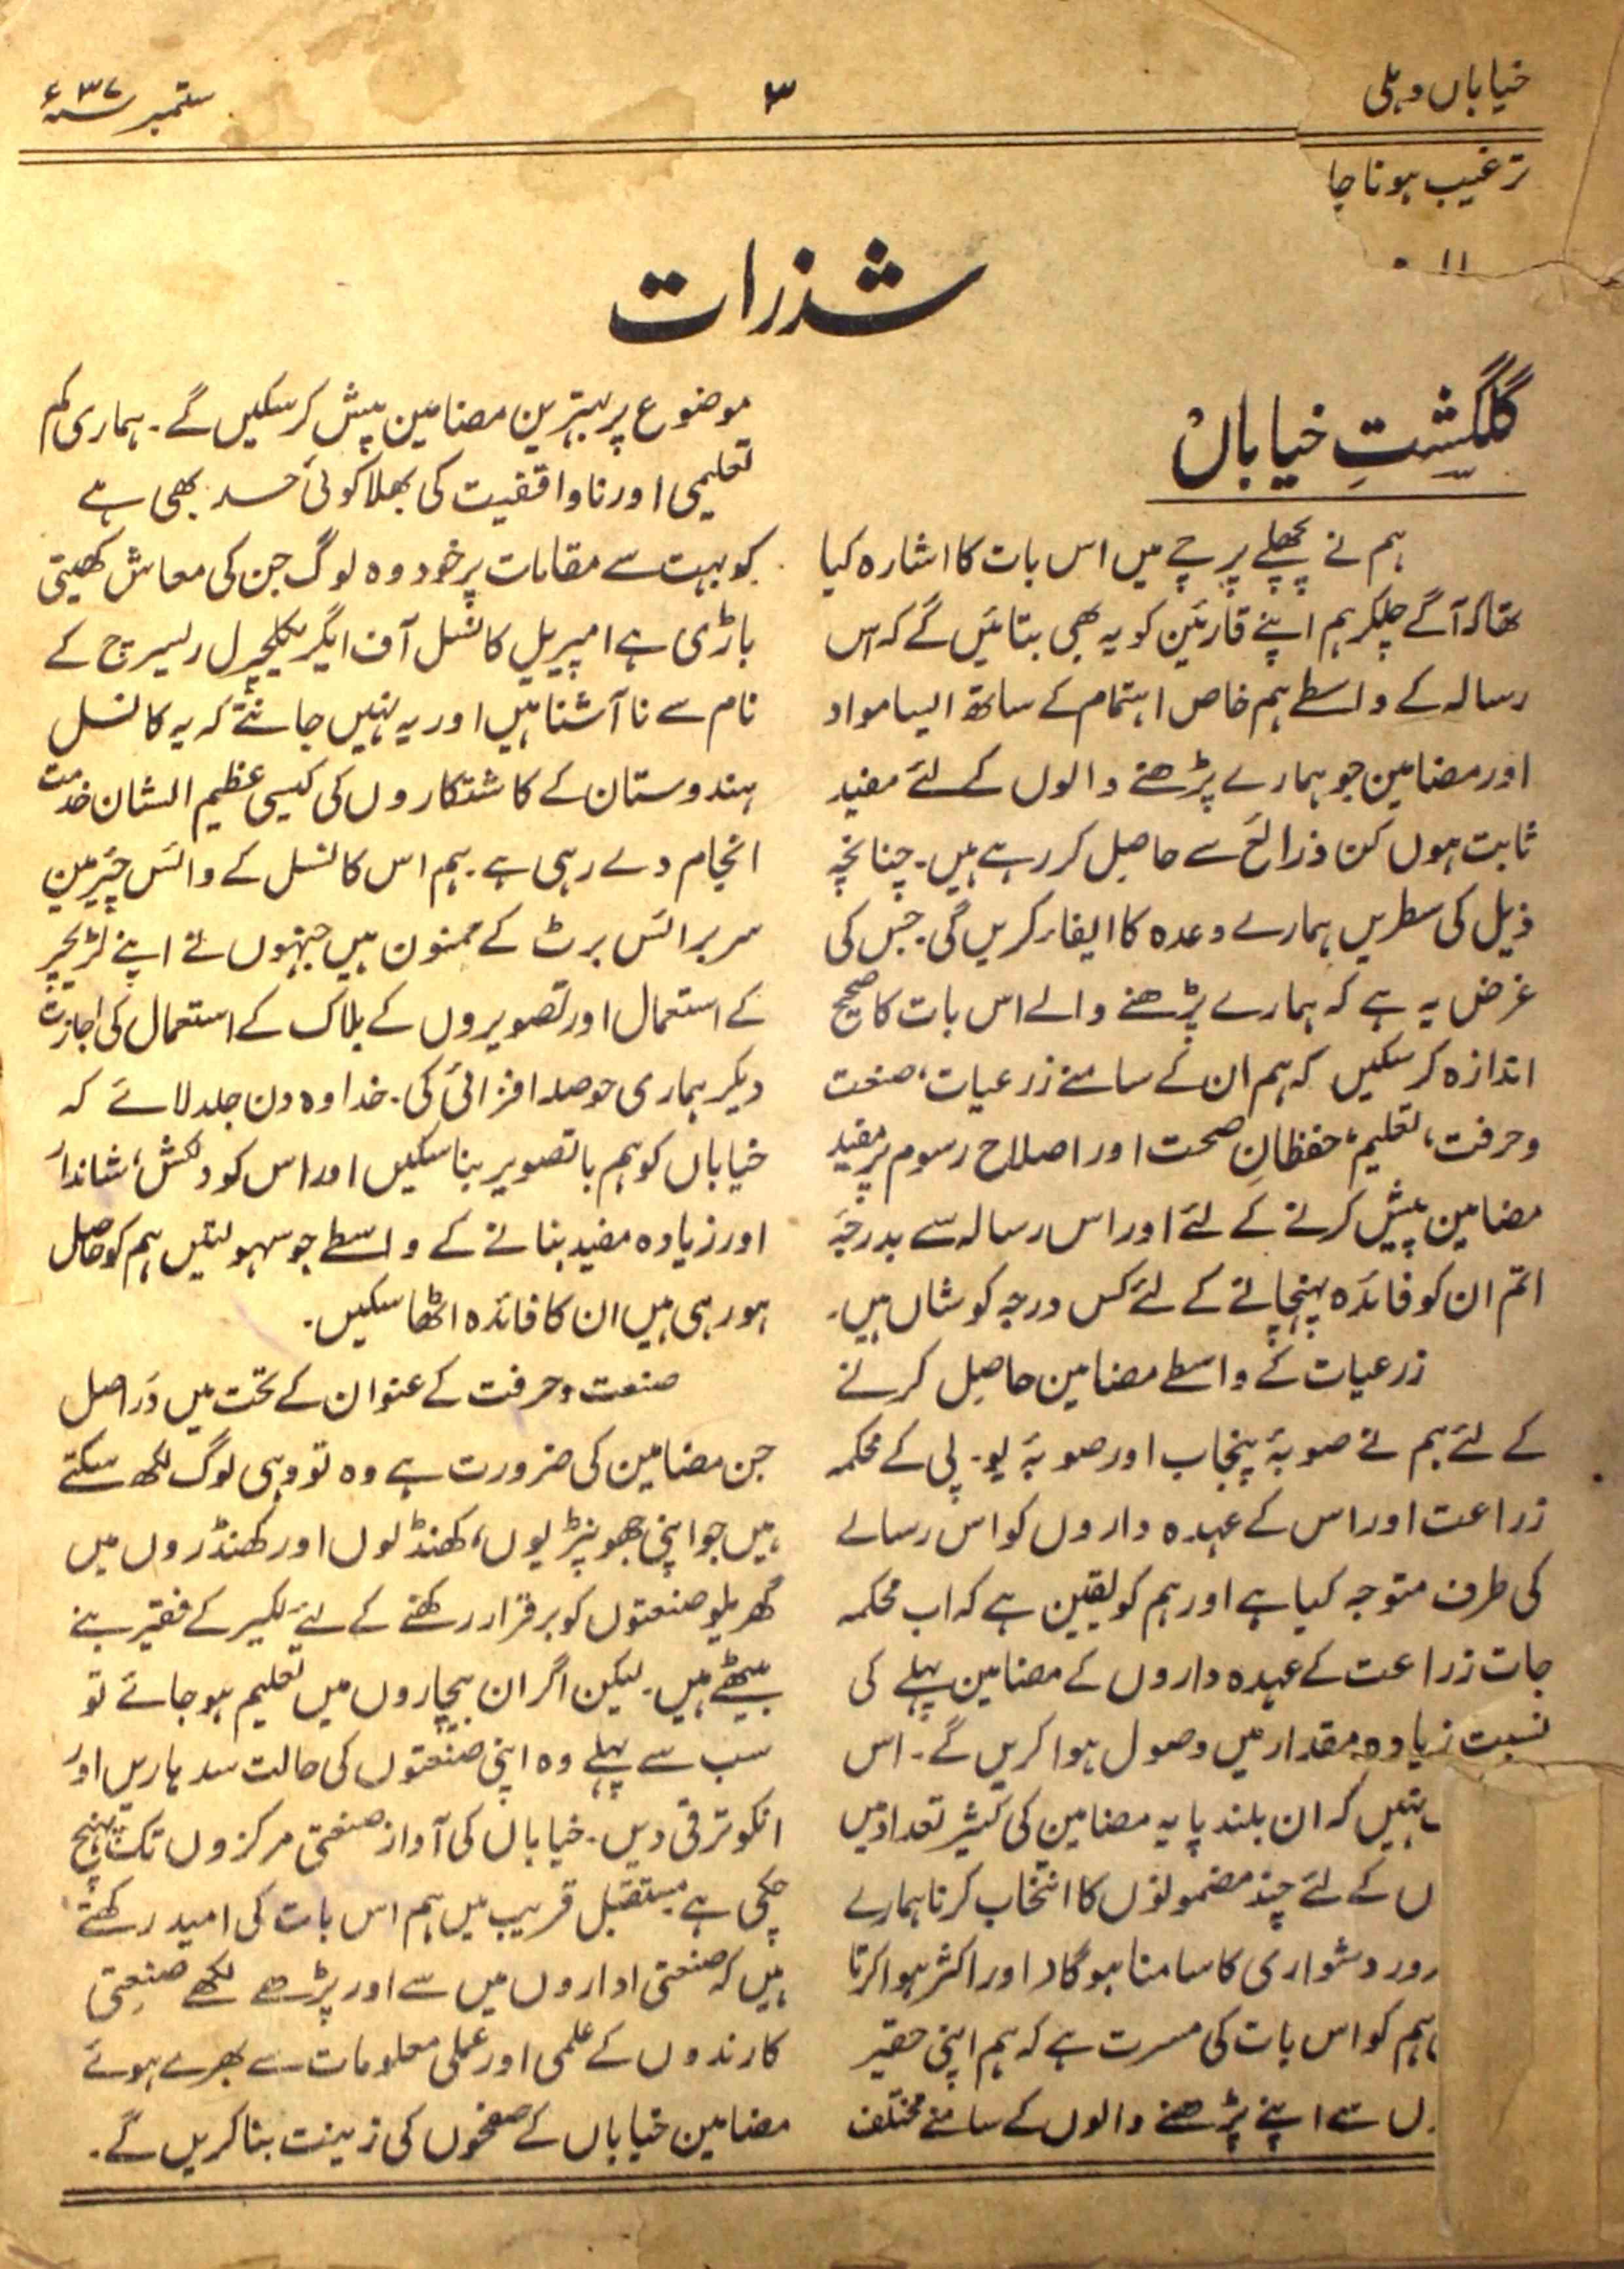 خیاباں دہلی
۳
ستمبر ۳۷ء
ترغیب ہونا چا
شذرات
گلگشتِ خیاباں
ہم نے پچھلے پرچے میں اس بات کا اشارہ کیا
تھا کہ آگے چلکر ہم اپنے قارئین کو یہ بھی بتائیں گے کہ اس
رسالہ کے واسطے ہم خاص اہتمام کے ساتھ ایسا مواد
اور مضامین جو ہمارے پڑھنے والوں کے لئے مفید
ثابت ہوں کن ذرائع سے حاصل کر رہے ہیں۔ چنانچہ
ذیل کی سطریں ہمارے وعدہ کا ایفار کریں گی۔ جس کی
غرض یہ ہے کہ ہمارے پڑھنے والے اس بات کا صحیح
اندازہ کر سکیں کہ ہم ان کے سامنے زرعیات، صنعت
و حرفت، تعلیم، حفظانِ صحت اور اصلاح رسوم پر مفید
مضامین پیش کرنے کے لئے اور اس رسالہ سے بدرجۂ
اتم ان کو فائدہ پہنچانے کے لئے کس درجہ کوشاں ہیں۔
زرعیات کے واسطے مضامین حاصل کرنے
کے لئے ہم نے صوبۂ پنجاب اور صوبۂ یو۔ پی کے محکمہ
زراعت اور اس کے عہدہ داروں کو اس رسالے
کی طرف متوجہ کیا ہے اور ہم کو یقین ہے کہ اب محکمہ
جات زراعت کے عہدہ داروں کے مضامین پہلے کی
نسبت زیادہ مقدار میں وصول ہوا کریں گے۔ اس
نہیں کہ ان بلند پایہ مضامین کی کثیر تعداد میں
ں کے لئے چند مضمونوں کا انتخاب کرنا ہمارے
رور دشواری کا سامنا ہو گا اور اکثر ہوا کرتا
ہم کو اس بات کی مسرت ہے کہ ہم اپنی حقیر
ں سے اپنے پڑھنے والوں کے سامنے مختلف
موضوع پر بہترین مضامین پیش کر سکیں گے۔ ہماری کم
تعلیمی اور ناواقفیت کی بھلا کوئی حد بھی ہے
کو بہت سے مقامات پر خود وہ لوگ جن کی معاش کھیتی
باڑی ہے امپیریل کانسل آف ایگریکلچرل ریسرچ کے
نام سے ناآشنا ہیں اور یہ نہیں جانتے کہ یہ کانسل
ہندوستان کے کاشتکاروں کی کیسی عظیم الشان خدمت
انجام دے رہی ہے۔ ہم اس کانسل کے وائس چیرمین
سر برائس برٹ کے ممنون ہیں جنہوں نے اپنے لٹریچر
کے استعمال اور تصویروں کے بلاک کے استعمال کی اجازت
دیکر ہماری حوصلہ افزائی کی۔ خدا وہ دن جلد لائے کہ
خیاباں کو ہم باتصویر بنا سکیں اور اس کو دلکش، شاندار
اور زیادہ مفید بنانے کے واسطے جو سہولتیں ہم کو حاصل
ہو رہی ہیں ان کا فائدہ اٹھا سکیں۔
صنعت و حرفت کے عنوان کے تحت میں دراصل
جن مضامین کی ضرورت ہے وہ تو وہی لوگ لکھ سکتے
ہیں جو اپنی جھونپڑیوں، کھنڈلوں اور کھنڈروں میں
گھریلو صنعتوں کو برقرار رکھنے کے لئے لکیر کے فقیر بنے
بیٹھے ہیں۔ لیکن اگر ان بیچاروں میں تعلیم ہو جائے تو
سب سے پہلے وہ اپنی صنعتوں کی حالت سدہاریں اور
انکو ترقی دیں۔ خیاباں کی آواز صنعتی مرکزوں تک پہنچ
چکی ہے مستقبل قریب میں ہم اس بات کی امید رکھتے
ہیں کہ صنعتی اداروں میں سے اور پڑھے لکھے صنعتی
کارندوں کے علمی اور عملی معلومات سے بھرے ہوئے
مضامین خیاباں کے صفحوں کی زینت بنا کریں گے۔